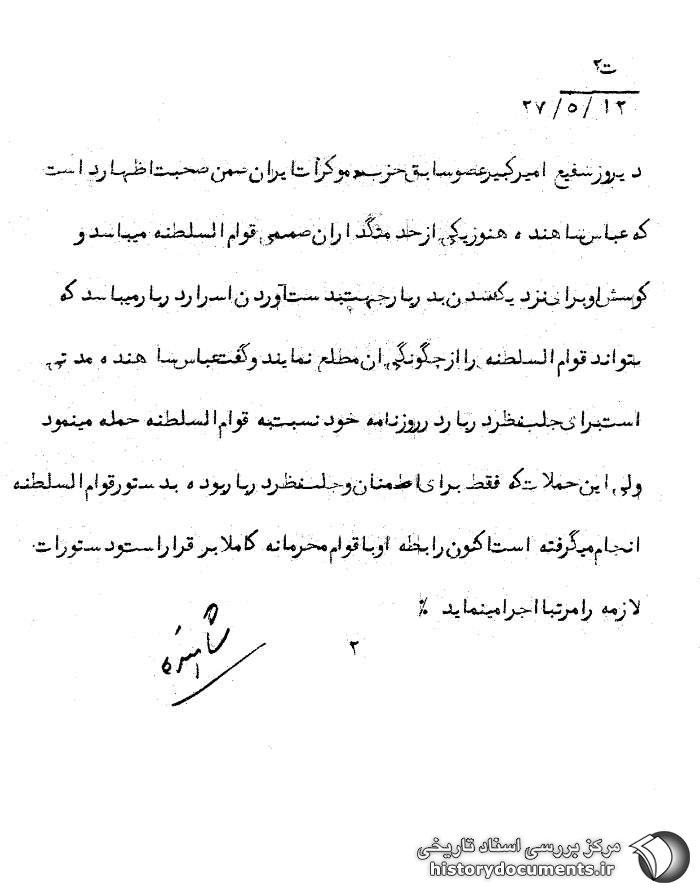 ت۲
۲۷/۵/۱۲
دیروز شفیع امیرکبیر عضو سابق حزب دموکرات ایران ضمن صحبت اظهار داشت
که عباس شاهنده هنوز یکی از خدمتگذاران صمیمی قوام السلطنه میباشد و
کوشش او برای نزدیک شدن بدربار جهت بدست آوردن اسرار دربار میباشد که
بتواند قوام السلطنه را از چگونگی آن مطلع نمایند و گفت عباس شاهنده مدتی
است برای جلب نظر دربار در روزنامه خود نسبت به قوام السلطنه حمله مینمود
ولی این حملات که فقط برای اطمنان و جلب نظر دربار بوده بدستور قوام السلطنه
انجام میگرفته است اکنون رابطه او با قوام محرمانه کاملا بر قرار است و دستورات
لازمه را مرتبا اجرا مینماید ٪
۲
شاهنده
مرکز بررسی اسناد تاریخی
historydocuments.ir